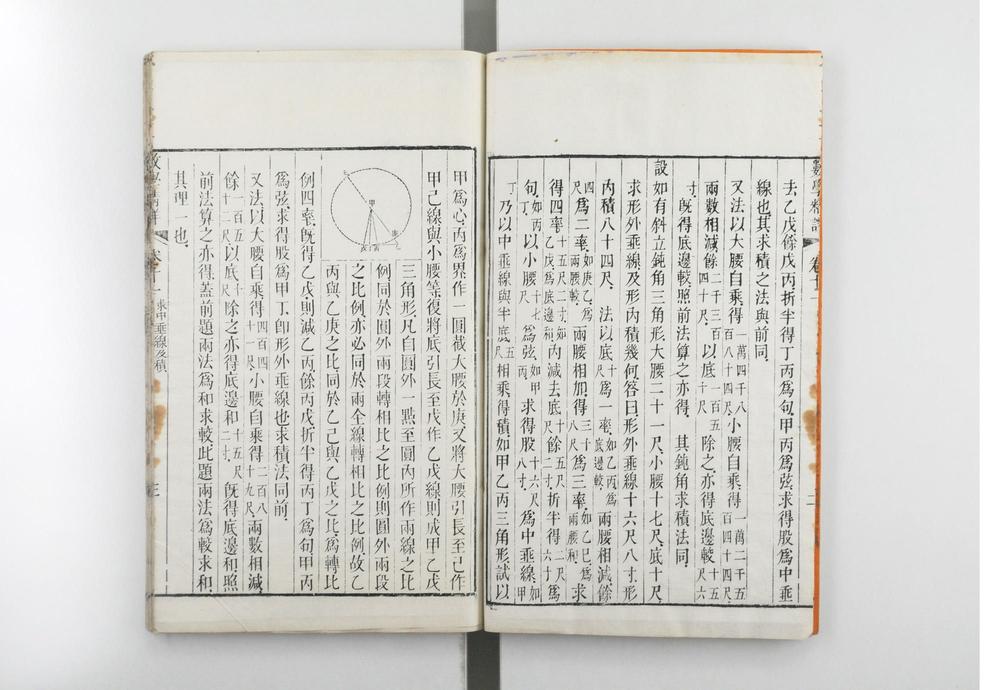 去乙戊餘戊丙折半得丁丙爲句甲丙爲弦求得股爲中垂
線也其求積之法與前同
又法以大腰自乘得一萬四千八百八十四尺小腰自乘得一萬二千五百四十四尺
兩數相減餘二千三百四十尺以底一百五十尺除之亦得底邊較十五尺六
寸旣得底邊較照前法算之亦得 其鈍角求積法同
設如有斜立鈍角三角形大腰二十一尺小腰十七尺底十尺
求形外垂線及形内積幾何答曰形外垂線十六尺八寸形
内積八十四尺 法以底十尺爲一率如乙丙爲底邊較兩腰相減餘
四尺爲二率如庚乙爲兩腰較兩腰相加得三十八尺爲三率如乙巳爲兩腰和求
得四率十五尺二寸如乙戊爲底邊和内減去底十尺餘五尺二寸折半得二尺六寸爲
句如丙丁以小腰十七尺爲弦如甲丙求得股十六尺八寸爲中垂線如甲
丁乃以中垂線與半底五尺相乘得積如甲乙丙三角形試以
數學精詳
卷十一
二
甲爲心丙爲界作一圓截大腰於庚又將大腰引長至己作
甲己線與小腰等復將底引長至戊作乙戊線則成甲乙戊
三角形凡自圓外一點至圓内所作兩線之比
例同於圓外兩段轉相比之比例則圓外兩段
之比例亦必同於兩全線轉相比之比例故乙
丙與乙庚之比同於乙己與乙戊之比爲轉比
例四率旣得乙戊則減乙丙餘丙戊折半得丙丁爲句甲丙
爲弦求得股爲甲丁卽形外垂線也求積法同前
又法以大腰自乘得四百四十一尺小腰自乘得二百八十九尺兩數相減
餘一百五十二尺以底十尺除之亦得底邊和十五尺二寸旣得底邊和照
前法算之亦得蓋前題兩法爲和求較此題兩法爲較求和
其理一也
求中垂線及積
三